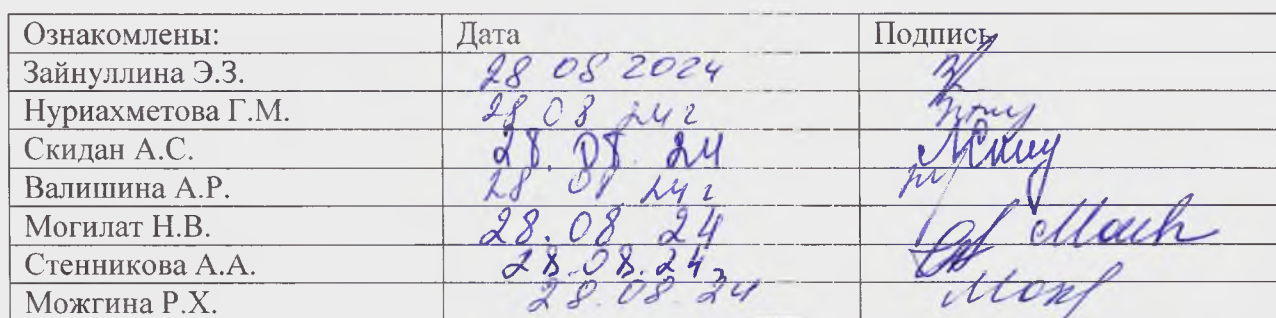 Ознакомлены: Дата Подпись
Зайнуллина Э.З. 28 08 2024
Нуриахметова Г.М. 28 08 24 г
Скидан А.С. 28. 08. 24
Валишина А.Р. 28 08 24 г
Могилат Н.В. 28. 08. 24
Стенникова А.А. 28.08.24
Можгина Р.Х. 28.08.24